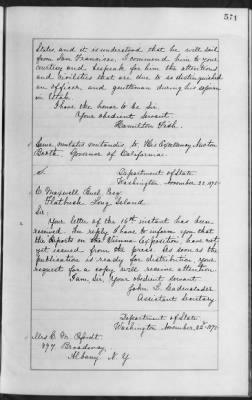 571
States, and it is understood that he will sail
from San Francisco. I commend him to your
courtesy and bespeak for him the attentions
and civilities that are due to so distinguished
an officer, and gentleman during his sojourn
in Utah.
I have the honor to be Sir,
Your obedient servant,
Hamilton Fish.
Same mutatis mutandis to His Excellency Newton
Booth, Governor of California.
Department of State
Washington November 22. 187
Maxwell Esq
Flatbush Long Island
Sir:
Your letter of the 15th instant has been
received. In reply I have to inform you that
the Reports on the Vienna Exposition have not
yet issued from the press. As soon as the
publication is ready for distribution your
request for a copy will receive attention.
I am, Sir, Your obedient servant
John L. Cadwalader
Assistant Secretary
Department of State
Washington November, 22d 187
Mrs C. M.
Broadway,
Albany N. Y